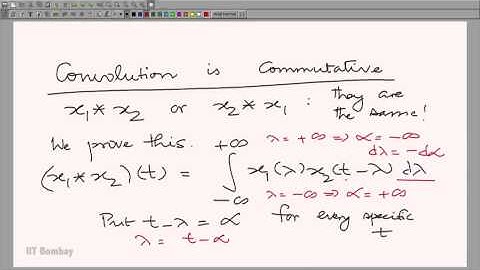 Convolution is Commutative
x₁ * x₂ or x₂ * x₁ : they are the same!
We prove this. λ = +∞ ⇒ α = -∞
dλ = -dα
(x₁ * x₂)(t) = ∫_{-∞}^{+∞} x₁(λ) x₂(t - λ) dλ
λ = -∞ ⇒ α = +∞
Put t - λ = α for every specific t
λ = t - α
IIT Bombay